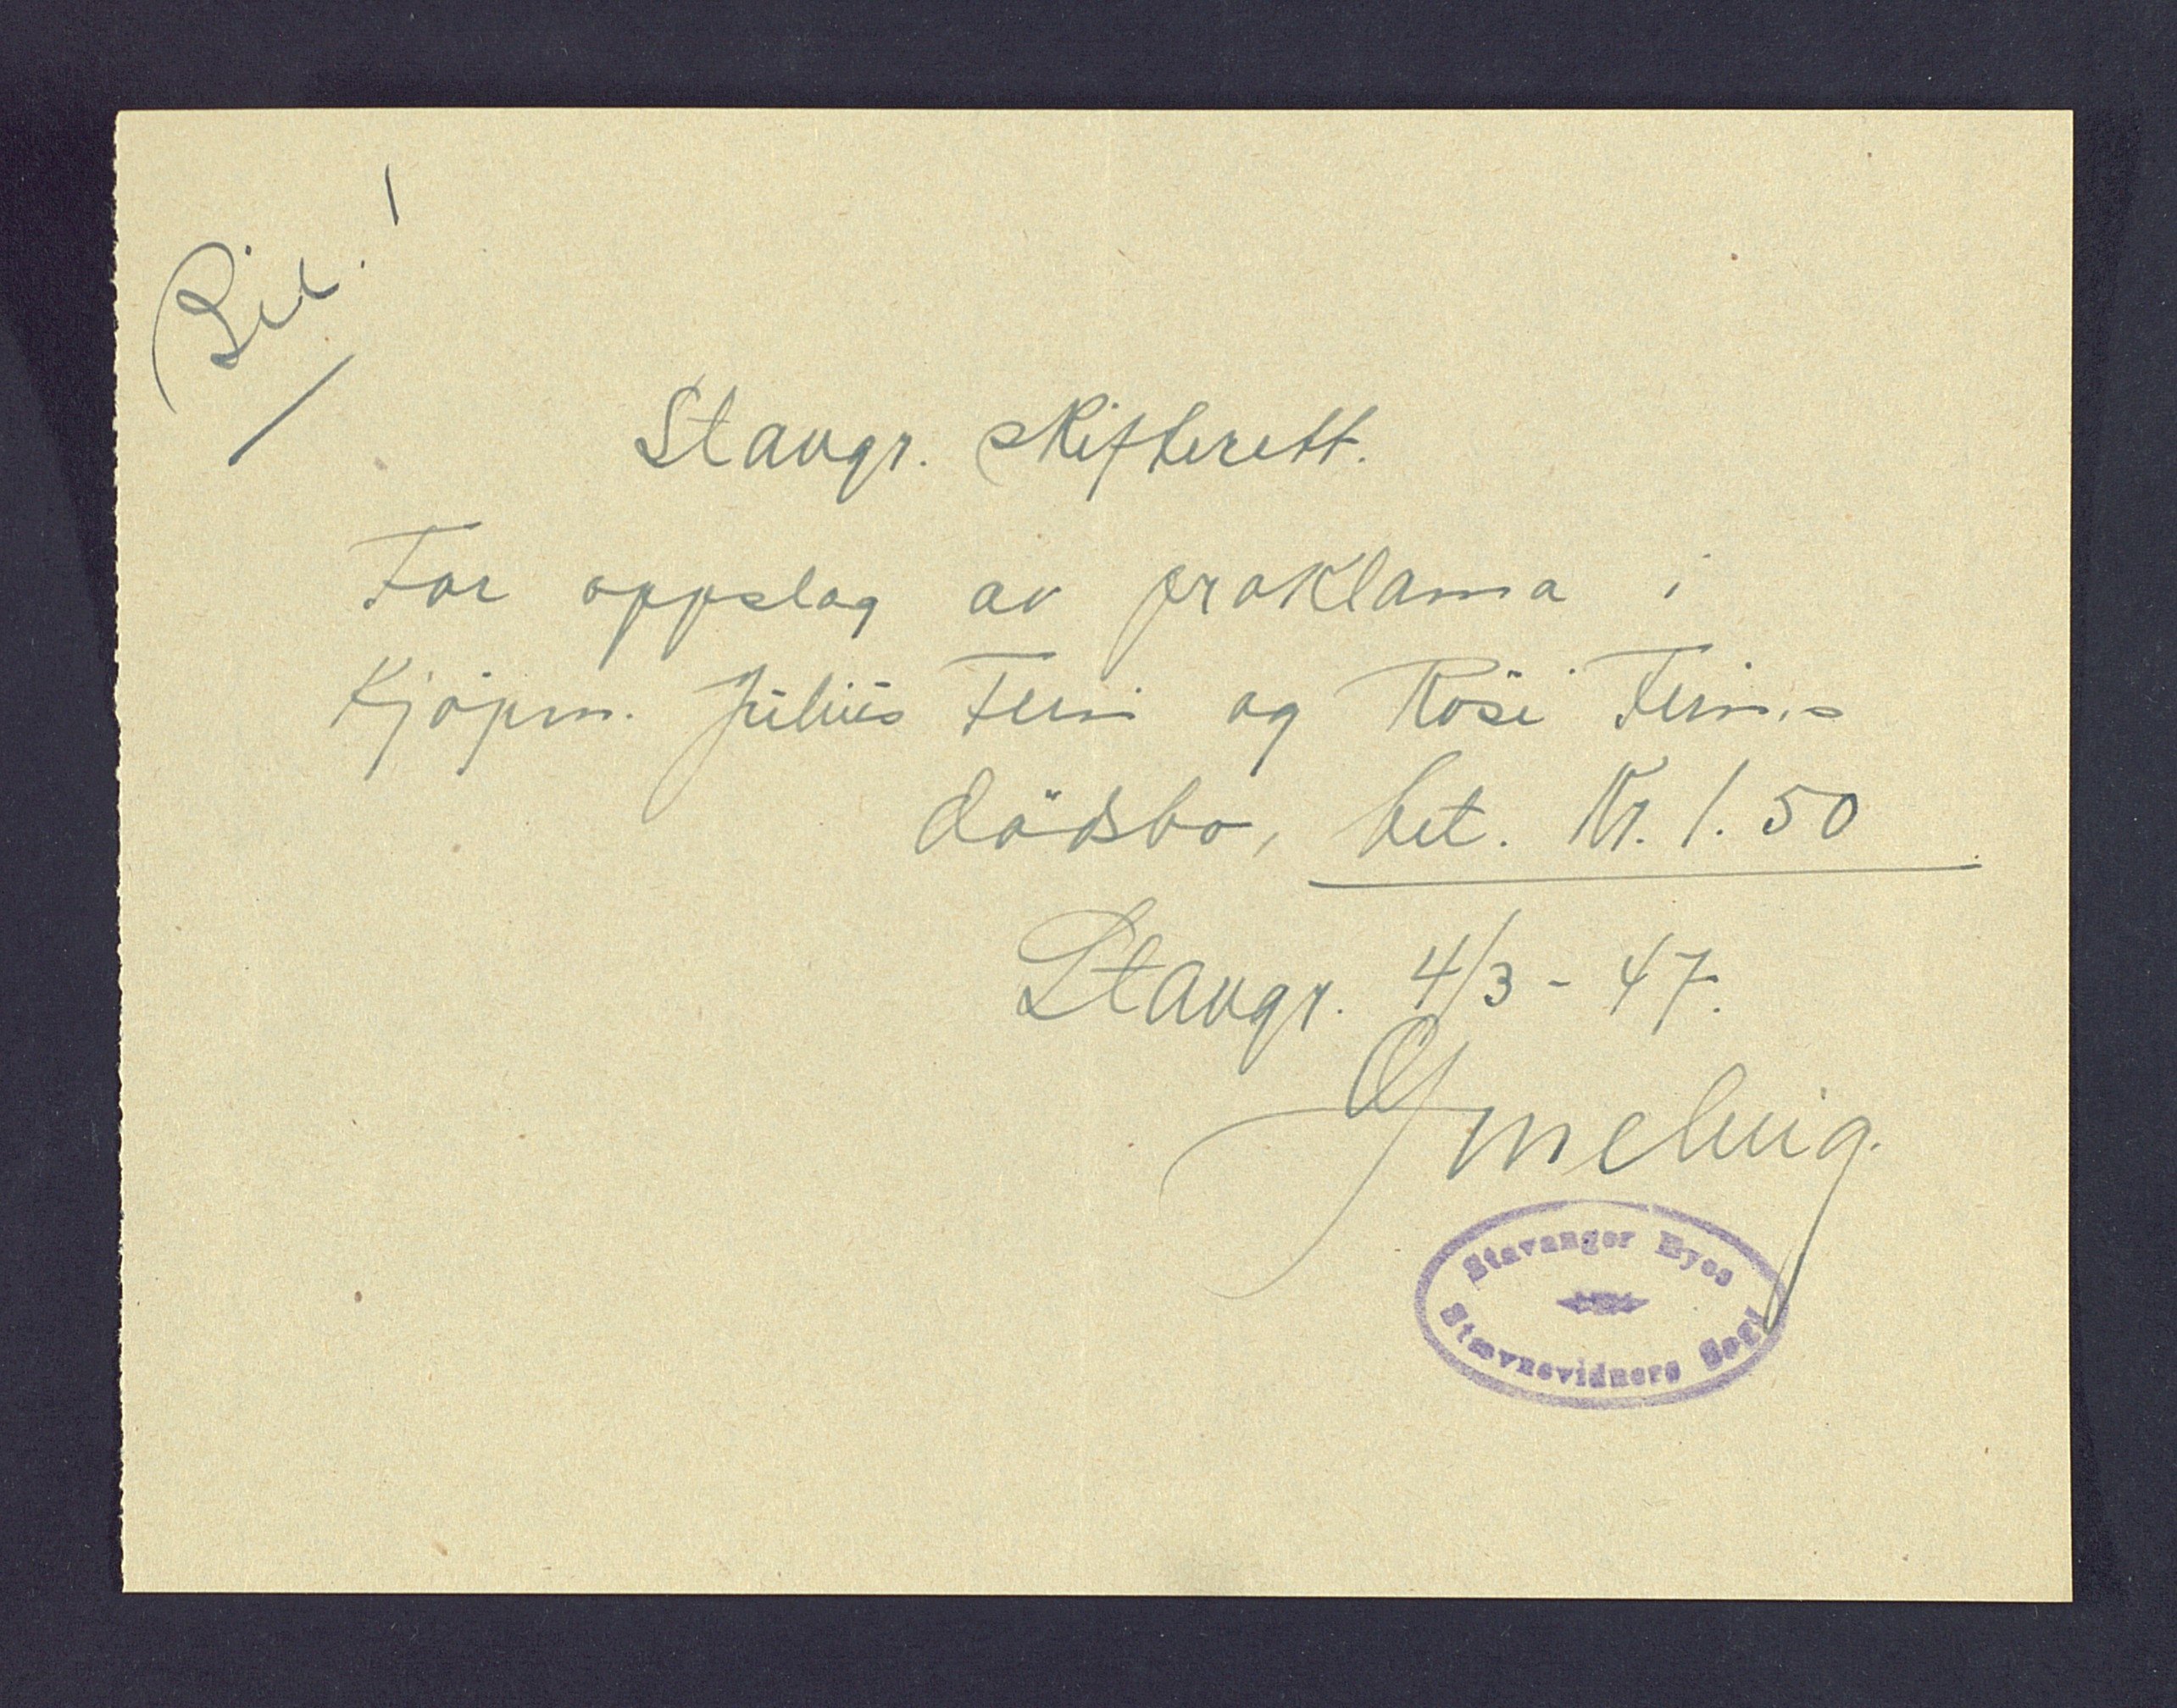 Bil. 1
Stavgr. skifterett.
For oppslag av proklama i
Kjöpm. Julius Fein og Rosi Fein.s
dödsbo, bet. Kr. 1.50
Stavgr. 4/3 - 47.
Stavanger Byes
Stævnevidners Segl